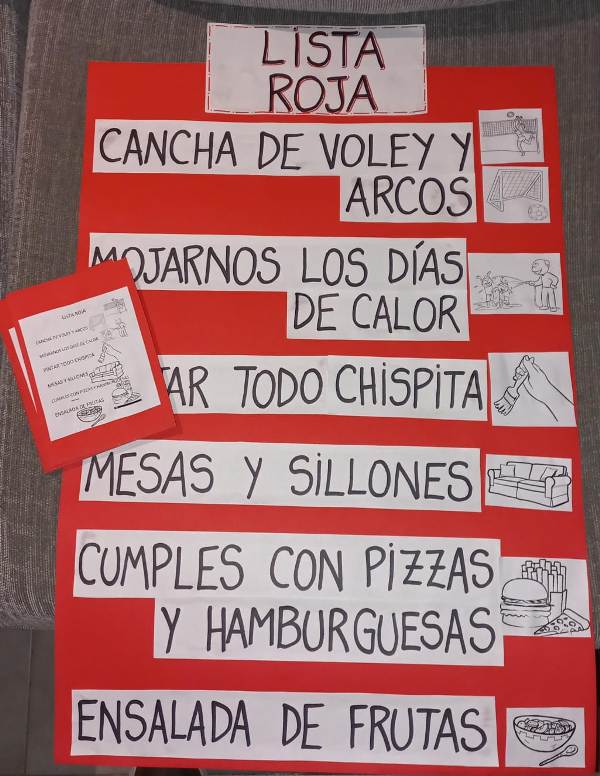 LISTA
ROJA
CANCHA DE VOLEY Y
ARCOS
MOJARNOS LOS DÍAS
DE CALOR
TAR TODO CHISPITA
MESAS Y SILLONES
CUMPLES CON PIZZAS
Y HAMBURGUESAS
ENSALADA DE FRUTAS
LISTA ROJA
CANCHA DE VOLEY Y ARCOS
MOJARNOS LOS DÍAS DE CALOR
PINTAR TODO CHISPITA
MESAS Y SILLONES
CUMPLES CON PIZZAS Y
ENSALADA DE FRUTAS